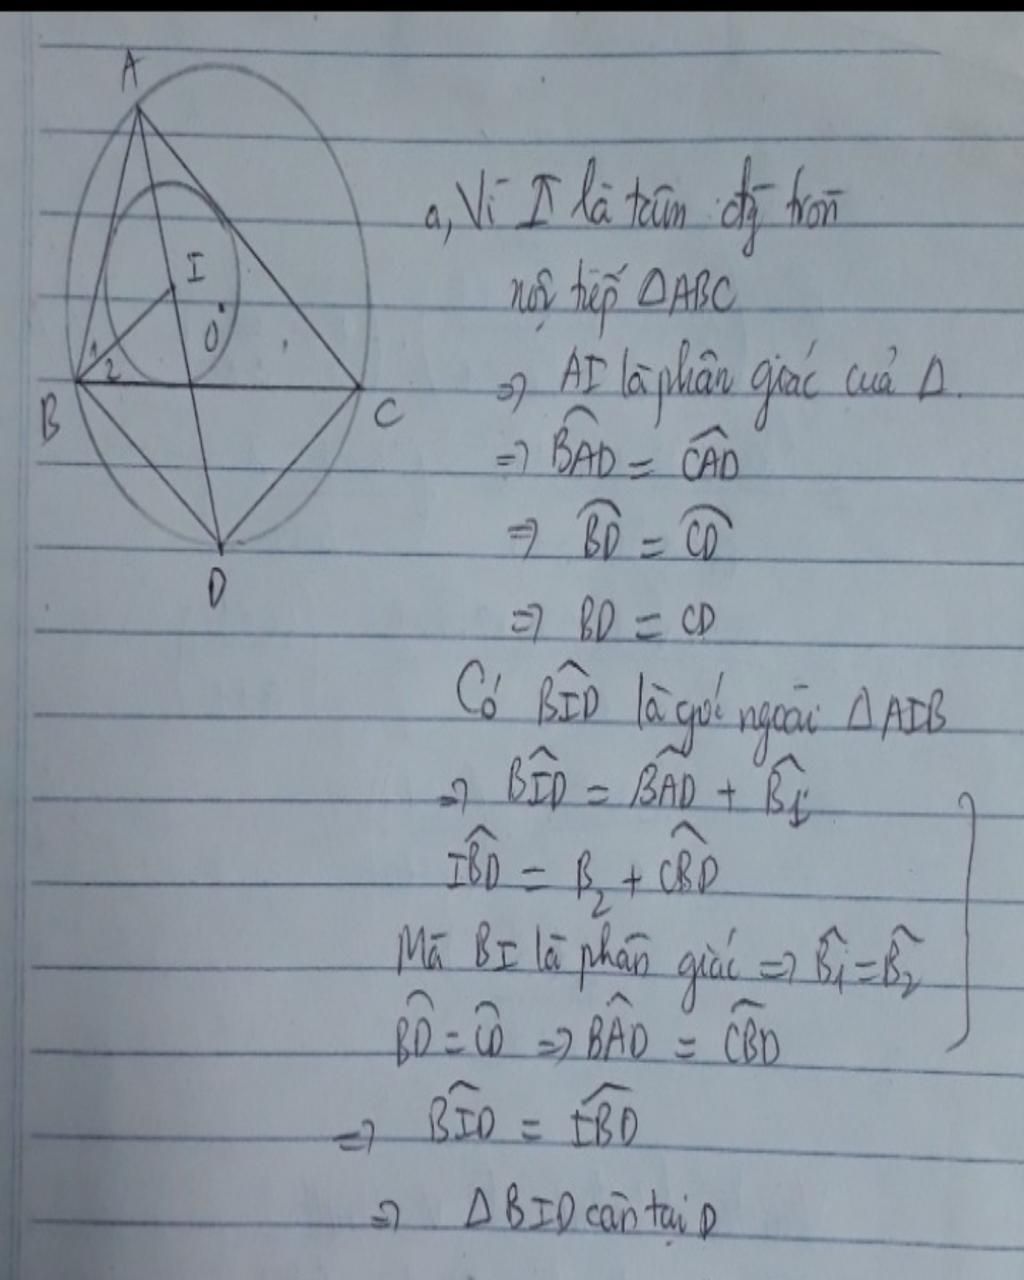 A
I
O
1
2
B
C
D
a, Vì I là tâm đg tròn
nội tiếp ΔABC
=> AI là phân giác của Δ.
=> \widehat{BAD} = \widehat{CAD}
=> \overset{\frown}{BD} = \overset{\frown}{CD}
=> BD = CD
Có \widehat{BID} là góc ngoài ΔAIB
=> \widehat{BID} = \widehat{BAD} + \widehat{B_1}
\widehat{IBD} = B_2 + \widehat{CBD}
Mà BI là phân giác => \widehat{B_1} = \widehat{B_2}
\overset{\frown}{BD} = \overset{\frown}{CD} => \widehat{BAD} = \widehat{CBD}
=> \widehat{BID} = \widehat{IBD}
=> ΔBID cân tại D